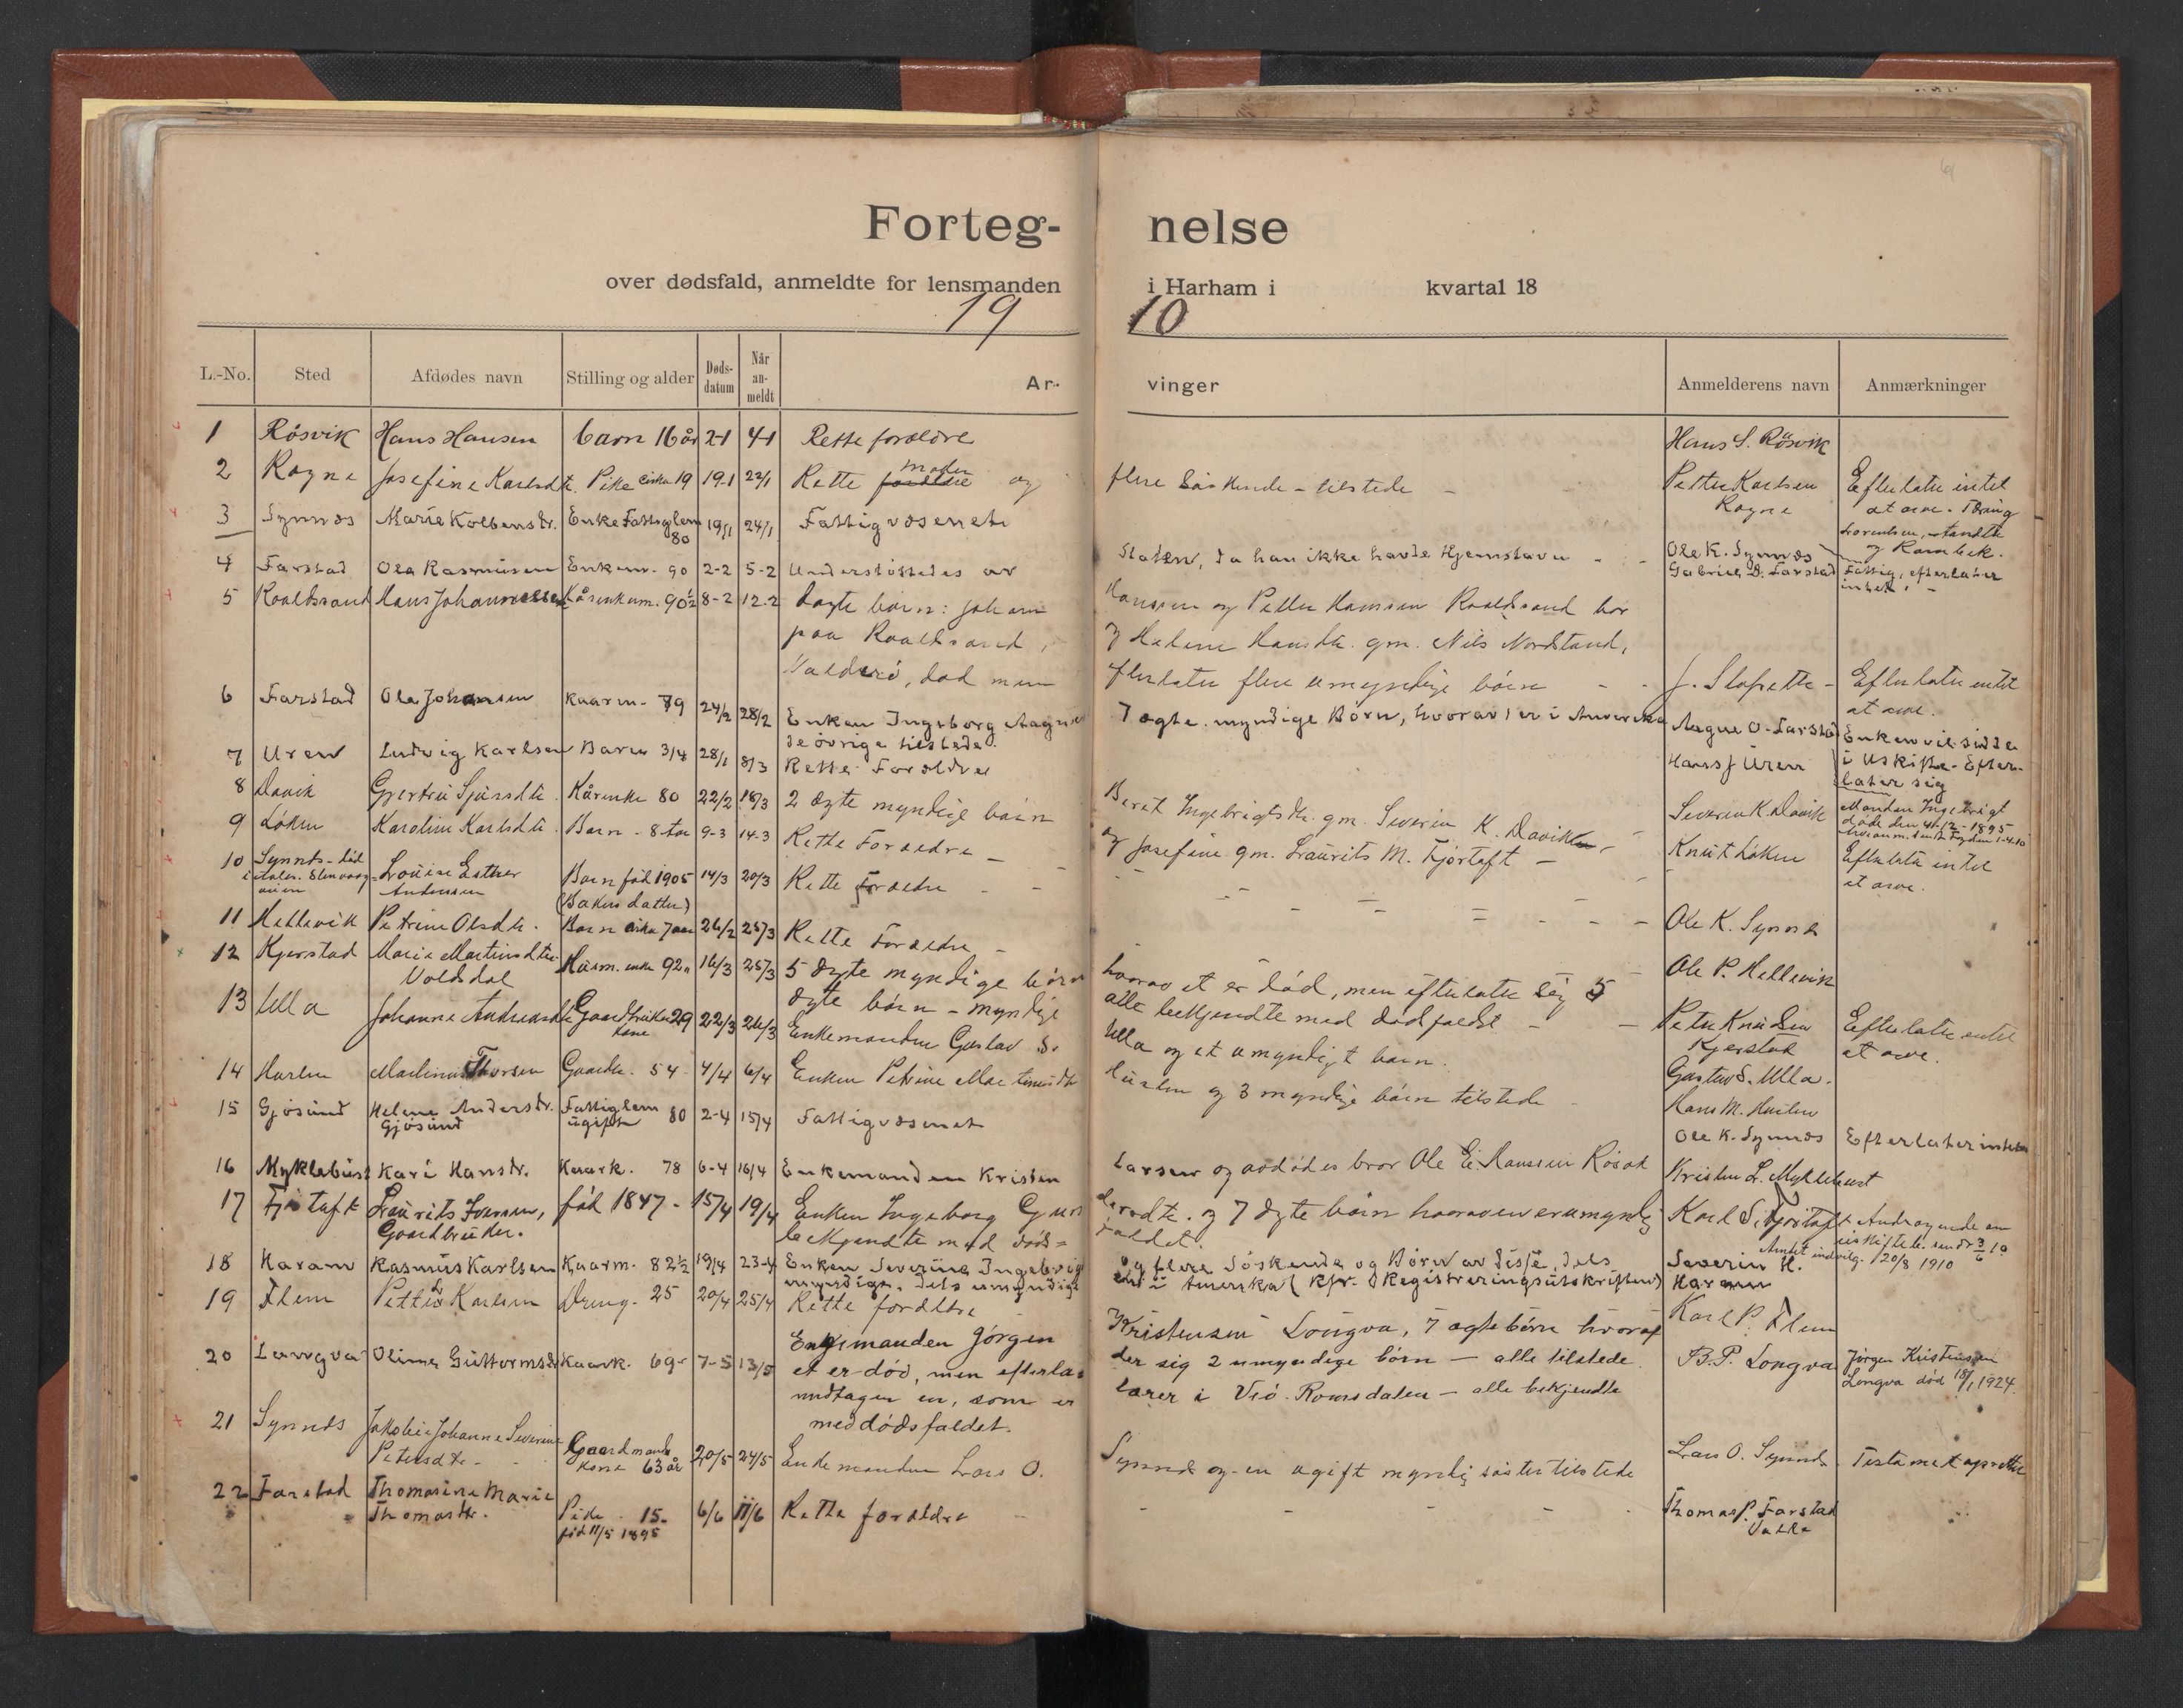 Forteg- nelse
over dødsfald, anmeldte for lensmanden i Harham i kvartal 18
19 10
L.-No. Sted Afdødes navn Stilling og alder Døds-datum Når an-meldt Ar- vinger Anmelderens navn Anmærkninger
1 Rösvik Hans Hansen barn 16 år 2-1 4-1 Rette forældre Hans S. Rösvik
2 Rogne Josefine Karlsdtr. Pike cirka 19 19-1 22/1 Rette moder og flere Söskende - tilstede - Petter Karlsen Rogne Efterlater intet at arve.
3 Synnæs Marie Kolbenstr. Enke Fattiglem 80 19/1 24/1 Fattigvæsenet Ole K. Synnæs
4 Farstad Ola Rasmussen Enkem. 90 2-2 5-2 Understöttedes av Staten, da han ikke havde Hjemstavn - Gabriel D. Farstad Fattig, efterlater intet. -
5 Roaldsand Hans Johannessen Kårenkem. 90½ 8-2 12-2 2 ægte börn: Johan
Hanssen og Petter Hanssen Roaldsand bor
paa Roaldsand, og Helene Hansdtr. gm. Nils Nordstand,
Valderö, död men efterlater flere umyndige börn - J. Slyngstad - Efterlater intet at arve.
6 Farstad Ola Johansen Kaarm. 79 24/2 28/2 Enken Ingeborg Aagne 7 ægte myndige Börn, hvorav 1 er i Amerika Aagne O. Farstad Enken vil sidde
de övrige tilstede. i Uskifte - Efter-
later sig
7 Uren Ludvig Karlsen Barn 3/4 28/1 8/3 Rette Forældre Hans J Uren
8 Davik Gjertrü Sjursdtr. Kårenke 80 22/2 18/3 2 ægte myndige börn Beret Ingebrigtsdtr. gm. Severin K. Davik - Severin K. Davik Manden Ingebrigt
og Josefine gm. Laurits M. Fjörtoft - döde den 4-12-1895
9 Löken Karoline Karlsdtr. Barn - 8 9-3 14-3 Rette Forældre - Knut Löken Efterlater intet at arve.
10 Synnes - död i Aalesund Louise Esther Andersen Barn föd 1905 (Bakers datter) 14/3 20/3 Rette Forældre - Ole K. Synnes
11 Hellevik Petrine Olsdtr. Barn cirka 7 aar 26/2 25/3 Rette Forældre - Ole P. Hellevik
12 Kjerstad Marie Martinusdtr. Voldsdal Kårm. enke 92 16/3 25/3 5 ægte myndige börn hvorav et er död, men efterlater sig 5
ægte börn - myndige alle bekjendte med dödsfaldet - Peter Knudsen Kjerstad Efterlater intet at arve.
13 Ulla Johanne Andreasdtr. Gaardbruker kone 29 22/3 26/3 Enkemanden Gustav S. Ulla og et umyndigt barn. Gustav S. Ulla.
14 Hurlen Martinus Thorsen Gaardbr. 54 4/4 6/4 Enken Petrine Martinusdtr. Hurlen og 3 myndige börn tilstede - Hans M. Hurlen
15 Gjösund Helene Anderstr. Gjösund Fattiglem ugift 80 2-4 15/4 Fattigvæsenet Ole K. Synnæs Efterlater intet
16 Myklebust Kari Hanstr. Kaark. 78 6-4 16/4 Enkemanden Kristen Larsen og avdödes bror Ole E. Hanssen Rösok Kristen L. Myklebust
17 Fjörtoft Laurits Iversen, Gaardbruker. föd 1847 - 15/4 19/4 Enken Ingeborg Gunderosdtr. og 7 ægte börn hvorav en er umyndig Karl S. Fjörtoft Andragende om
bekjendte med döds= faldet. uskifte bev. sendt 3/6 10
Amtet indvilg. 20/8 1910
18 Haram Rasmus Karlsen Kaarm. 82½ 19/4 23-4 Enken Severine Ingebrigt og flere Söskende og Börn av disse, dels Severin H. Haram
myndige, dels umyndige en i Amerika (kfr. Registreringsutskriften)
19 Flem Petter Karlsen Dreng. 25 20/4 25/4 Rette forældre Karl P. Flem
20 Longva Oline Guttormsdtr. Kaark. 69 7-5 13/5 Enkemanden Jörgen Kristensen Longva, 7 ægte börn hvoraf
et er död, men efterlader sig 2 umyndige börn - alle tilstede B.P. Longva Jörgen Kristensen
undtagen en, som er lærer i Veö Romsdalen - alle bekjendte Longva död 18/1 1924.
med dödsfaldet.
21 Synnes Jakobie Johanne Severine Petersdtr. Gaardmands kone 63 år 20/5 24/5 Enkemanden Lars O. Synnes og en ugift myndig söster tilstede Lars O. Synnes Testamet oprettet
22 Farstad Thomasine Marie Thomasdtr. Pike 15 - föd 11/5 1895 6/6 11/6 Rette forældre - Thomas P. Farstad Valle